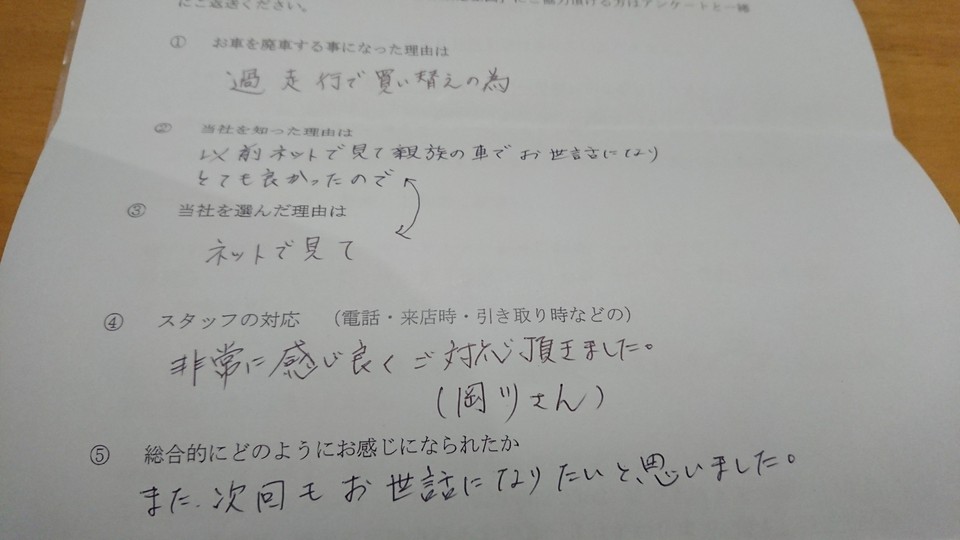 にご返送ください。
① お車を廃車する事になった理由は
過走行で買い替えの為
② 当社を知った理由は
以前ネットで見て親族の車でお世話になり
とても良かったので
③ 当社を選んだ理由は
ネットで見て
④ スタッフの対応 （電話・来店時・引き取り時などの）
非常に感じ良くご対応頂きました。
（岡川さん）
⑤ 総合的にどのようにお感じになられたか
また、次回もお世話になりたいと思いました。